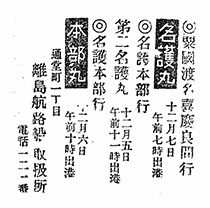 ◎粟國渡名喜慶良間行
名護丸
十二月七日
午前七時出港
◎名護本部行
第二名護丸
十二月五日
午前十一時出港
◎名護本部行
本部丸
二月六日
午前十時出港
通堂町一丁目
離島航路組取扱所
電話一二一番